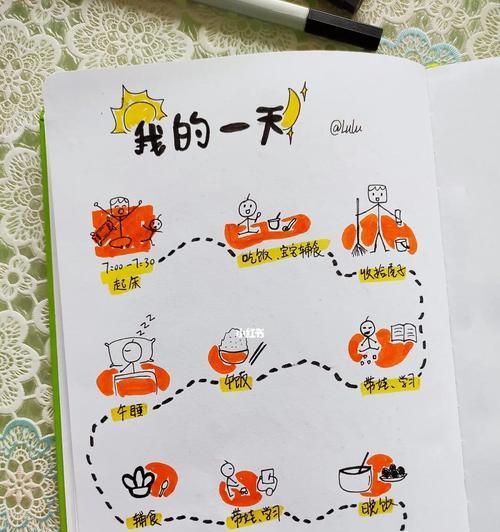 我的一天
@Lulu
7:00-7:30
起床
吃饭、宝宝辅食
收拾屋子
小红书
午睡
午饭
带娃、学习
辅食
带娃、学习
晚饭